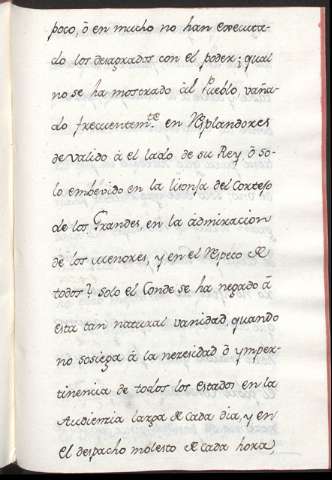 poco, ó en mucho no han executa-
do los desagrados con el poder; qual
no se ha mostrado al Pueblo, vaña-
do frecuentem.te en resplandores
de valido á el lado de su Rey, ó so-
lo embévido en la lisonja del Cortejo
de los Grandes, en la admiracion
de los menores, y en el respeto de
todos? solo el Conde se ha negado á
esta tan natural vanidad, quando
no sosiega á la nezesidad ó ymper-
tinencia de todos los estados en la
Audienzia larga de cada dia, y en
el despacho molesto de cada hora,